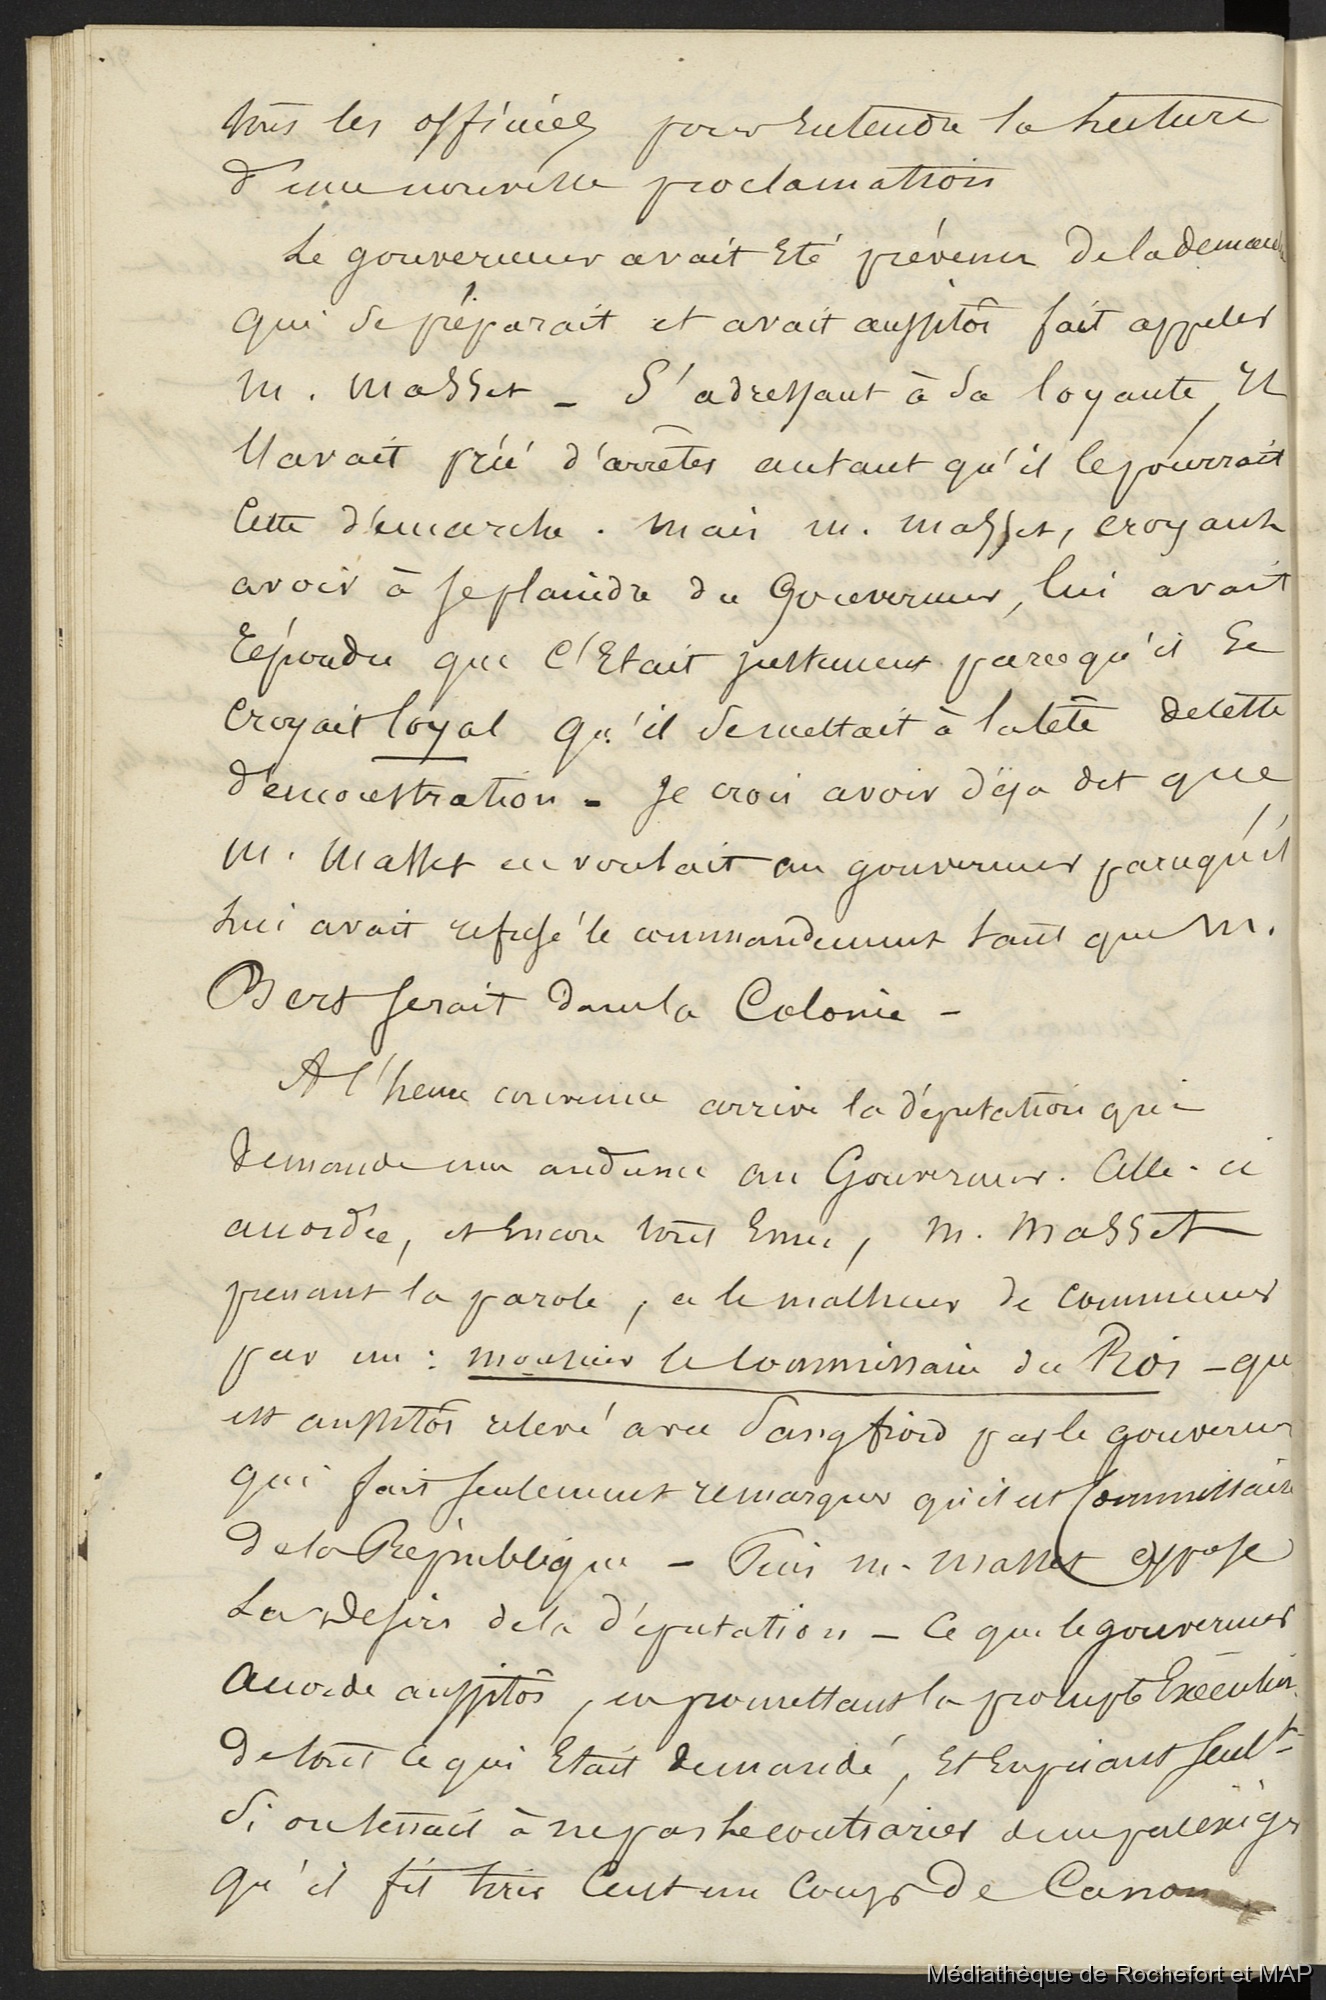 tous les officiers pour Entendre la Lecture
d'une nouvelle proclamation
Le gouverneur avait Eté prévenu de la demande
qui se préparait et avait aussitôt fait appeler
M. Masset _ S'adressant à sa loyauté, Il
l'avait prié d'arrêter autant qu'il le pourrait
Cette démarche. Mais M. Masset, croyant
avoir à se plaindre du Gouverneur, lui avait
répondu que C'Etait justement parcequ'il Se
Croyait loyal qu'il se mettait à la tête de cette
démonstration - Je crois avoir déja dit que
M. Masset en voulait au gouverneur parcequ'il
Lui avait refusé le commandement tant que M.
Bert serait dans la Colonie -
A l'heure convenue arrive la députation qui
demande une audience au Gouverneur. Celle-ci
accordée, et Encore tout Emu, M. Masset
prenant la parole, a le malheur de commencer
par un : monsieur le Commissaire du Roi - qui
est aussitôt relevé avec Sangfroid par le gouverneur
qui fait seulement remarquer qu'il est Commissaire
de la République - Puis M. Masset expose
Les Desirs de la députation - Ce que le gouverneur
accorde aussitôt, en promettant la prompte Exécution
de tout ce qui Etait demandé, Et En priant seult
Si on tenait à ne pas le contrarier de ne pas exiger
qu'il fit tirer Cent un Coups de Canon
Médiathèque de Rochefort et MAP